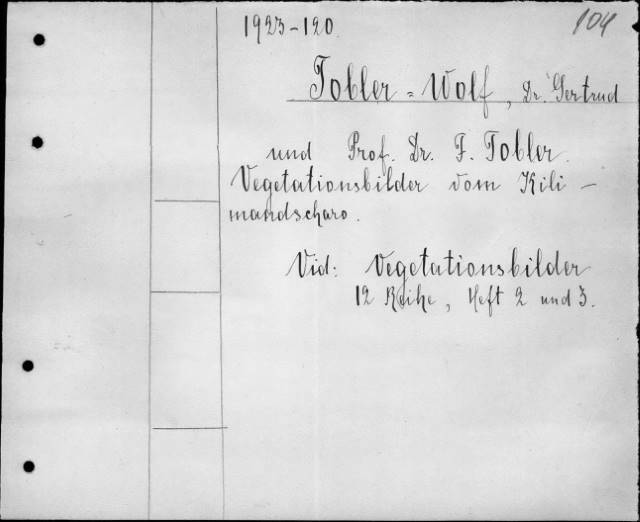 1923-120.
104
Tobler = Wolf, Dr. Gertrud
und Prof. Dr. F. Tobler.
Vegetationsbilder vom Kili -
mandscharo.
Vid: Vegetationsbilder
12 Reihe, Heft 2 und 3.